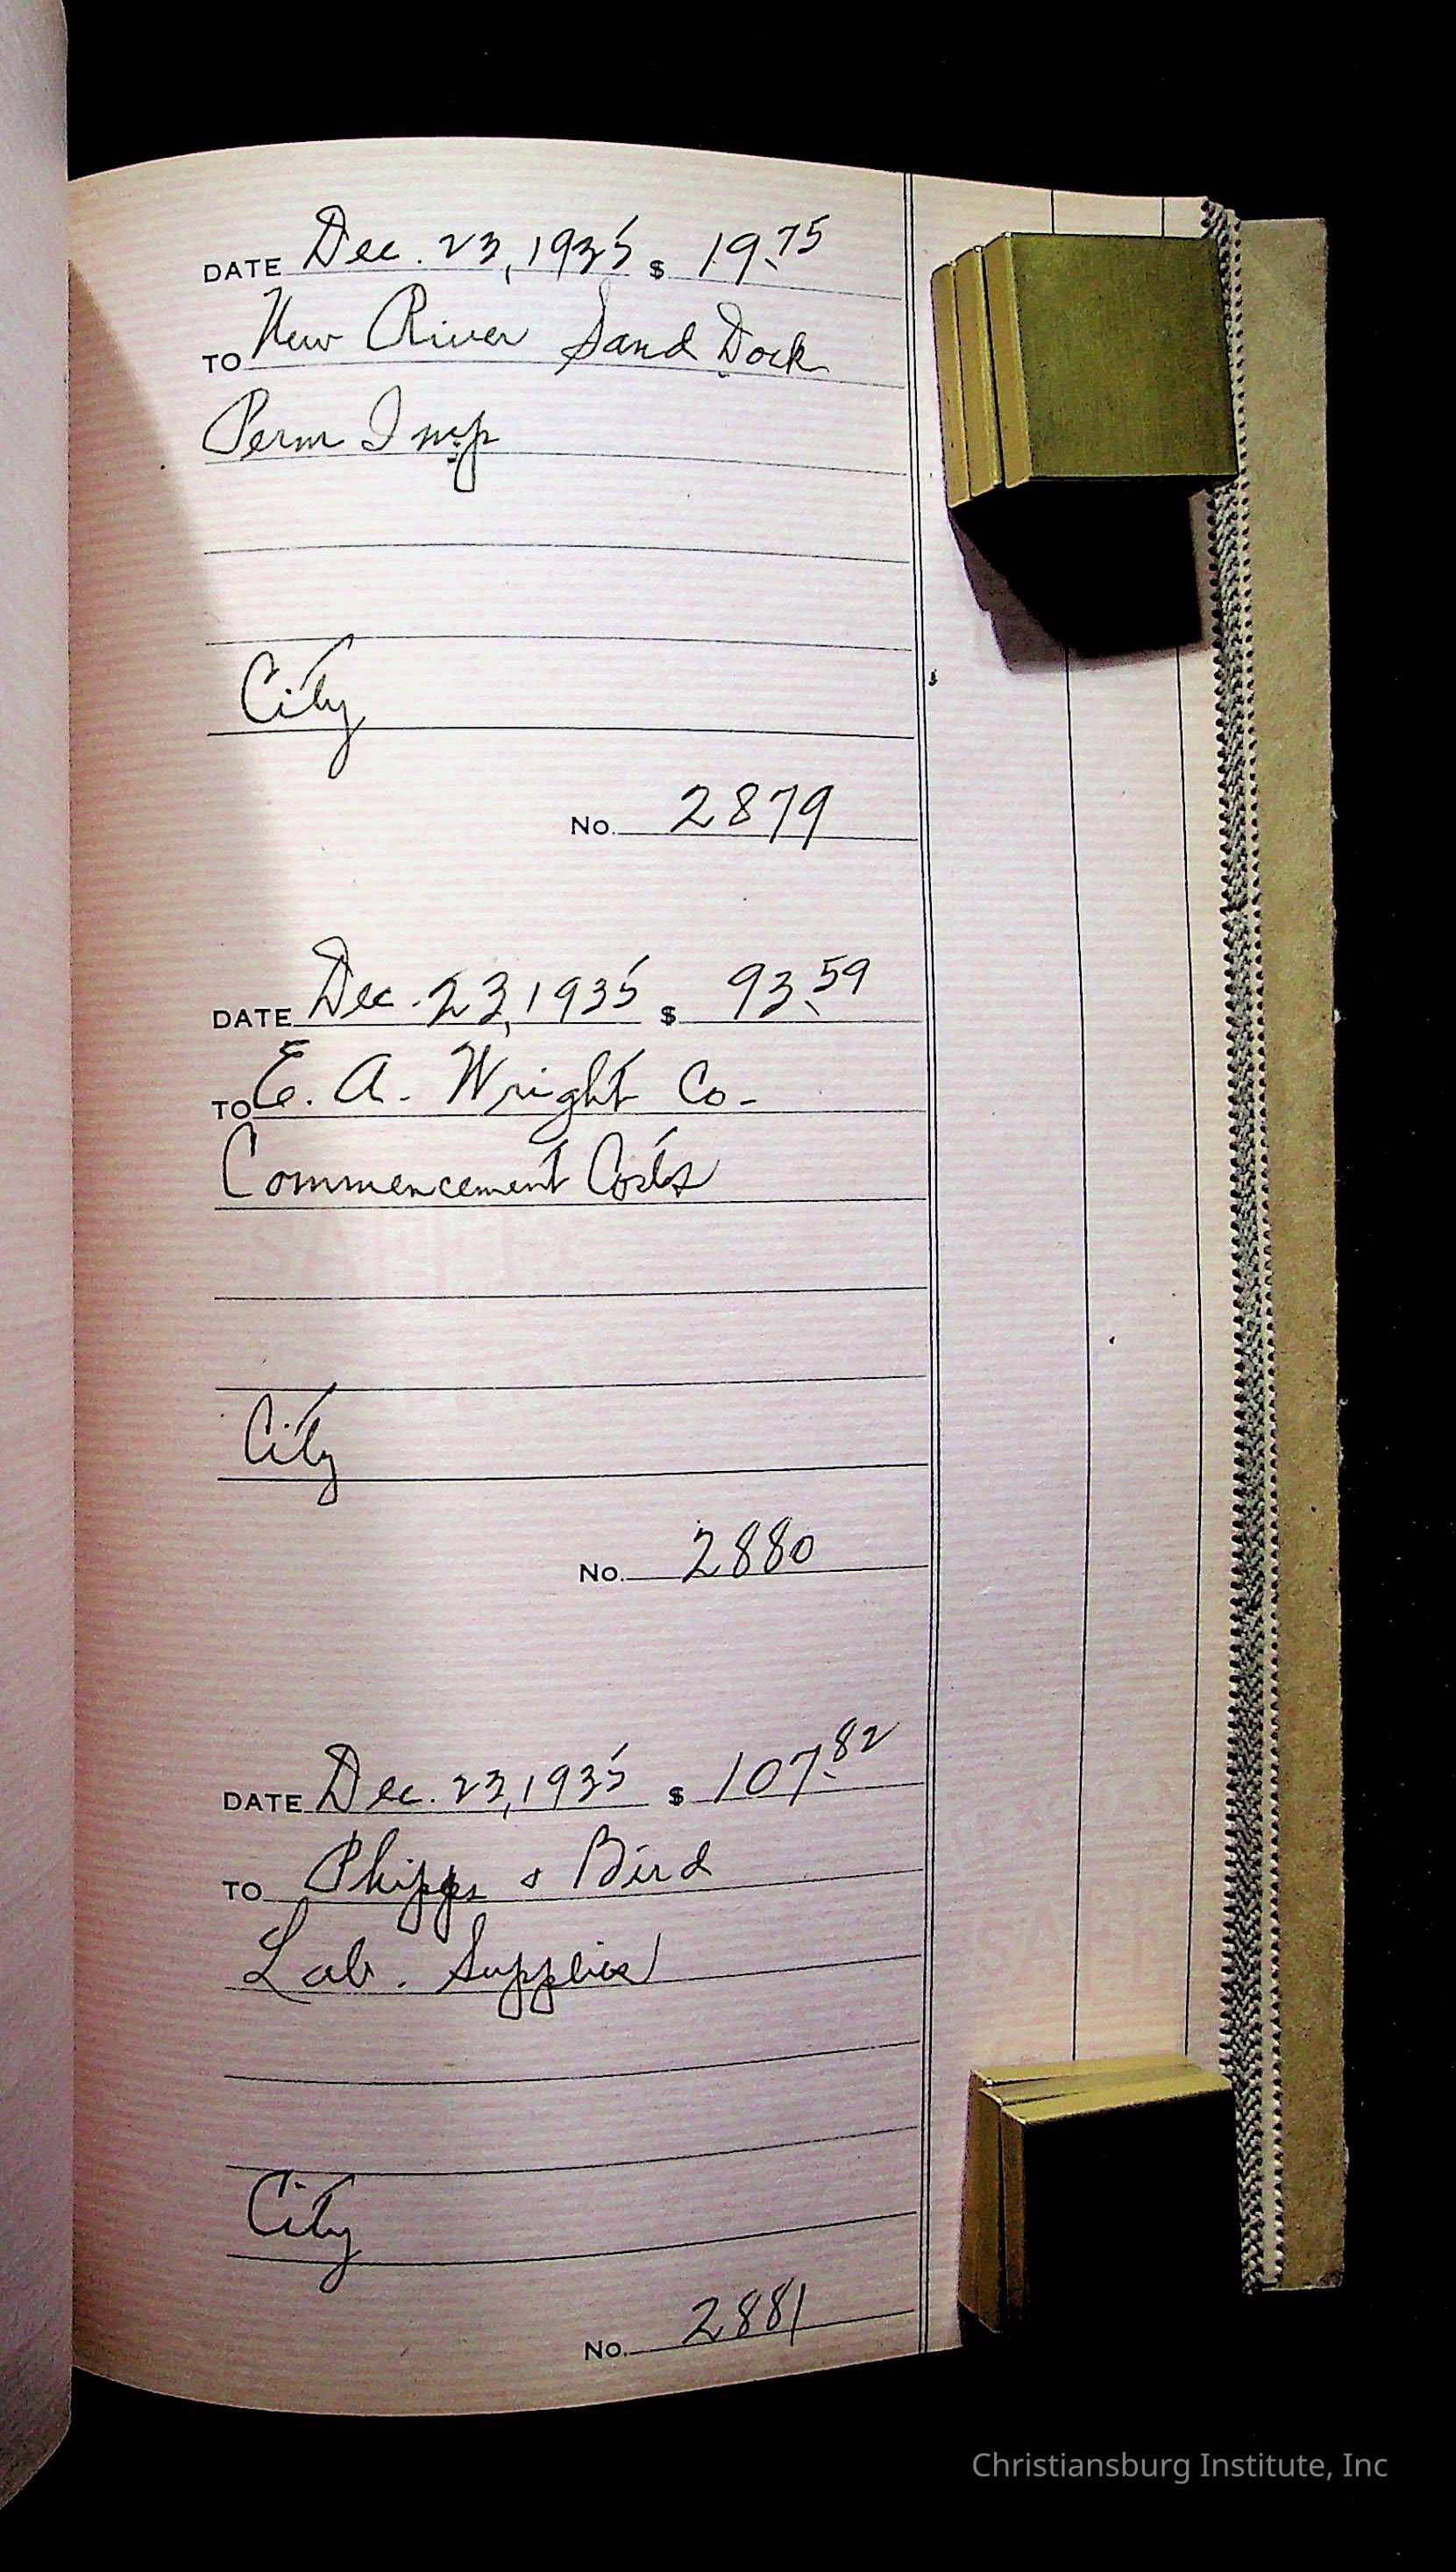 DATE Dec. 23, 1935 $ 19.75
TO New River Sand Dock
Perm Imp
City
No. 2879
DATE Dec. 23, 1935 $ 93.59
TO E. A. Wright Co-
Commencement Costs
City
No. 2880
DATE Dec. 23, 1935 $ 107.82
TO Phipps & Bird
Lab. Supplies
City
No. 2881
Christiansburg Institute, Inc